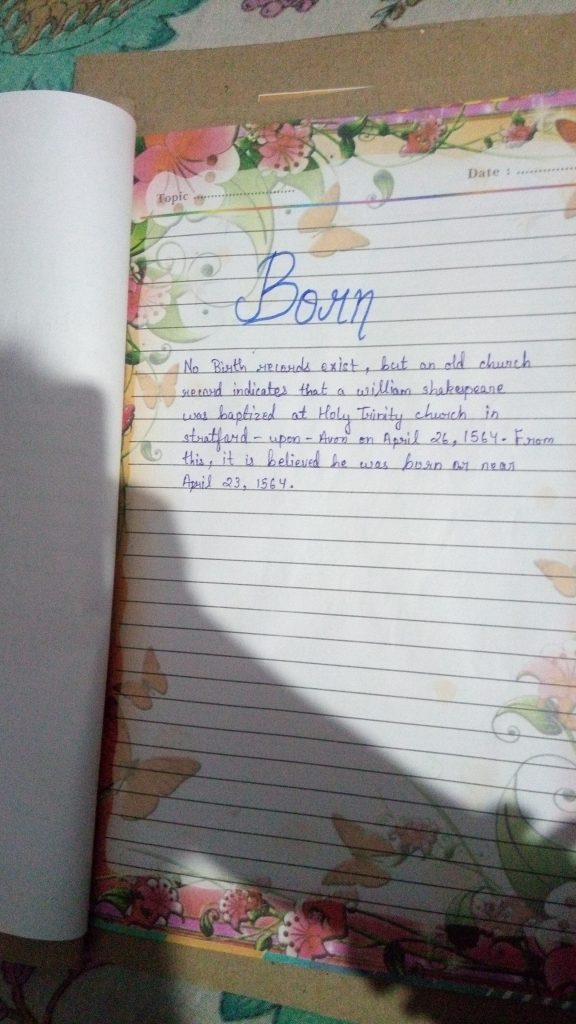 Topic ..........................
Date : ................
Born
No Birth records exist, but an old church
record indicates that a william shakespeare
was baptized at Holy Trinity church in
stratford - upon - Avon on April 26, 1564. From
this, it is believed he was born or near
April 23, 1564.